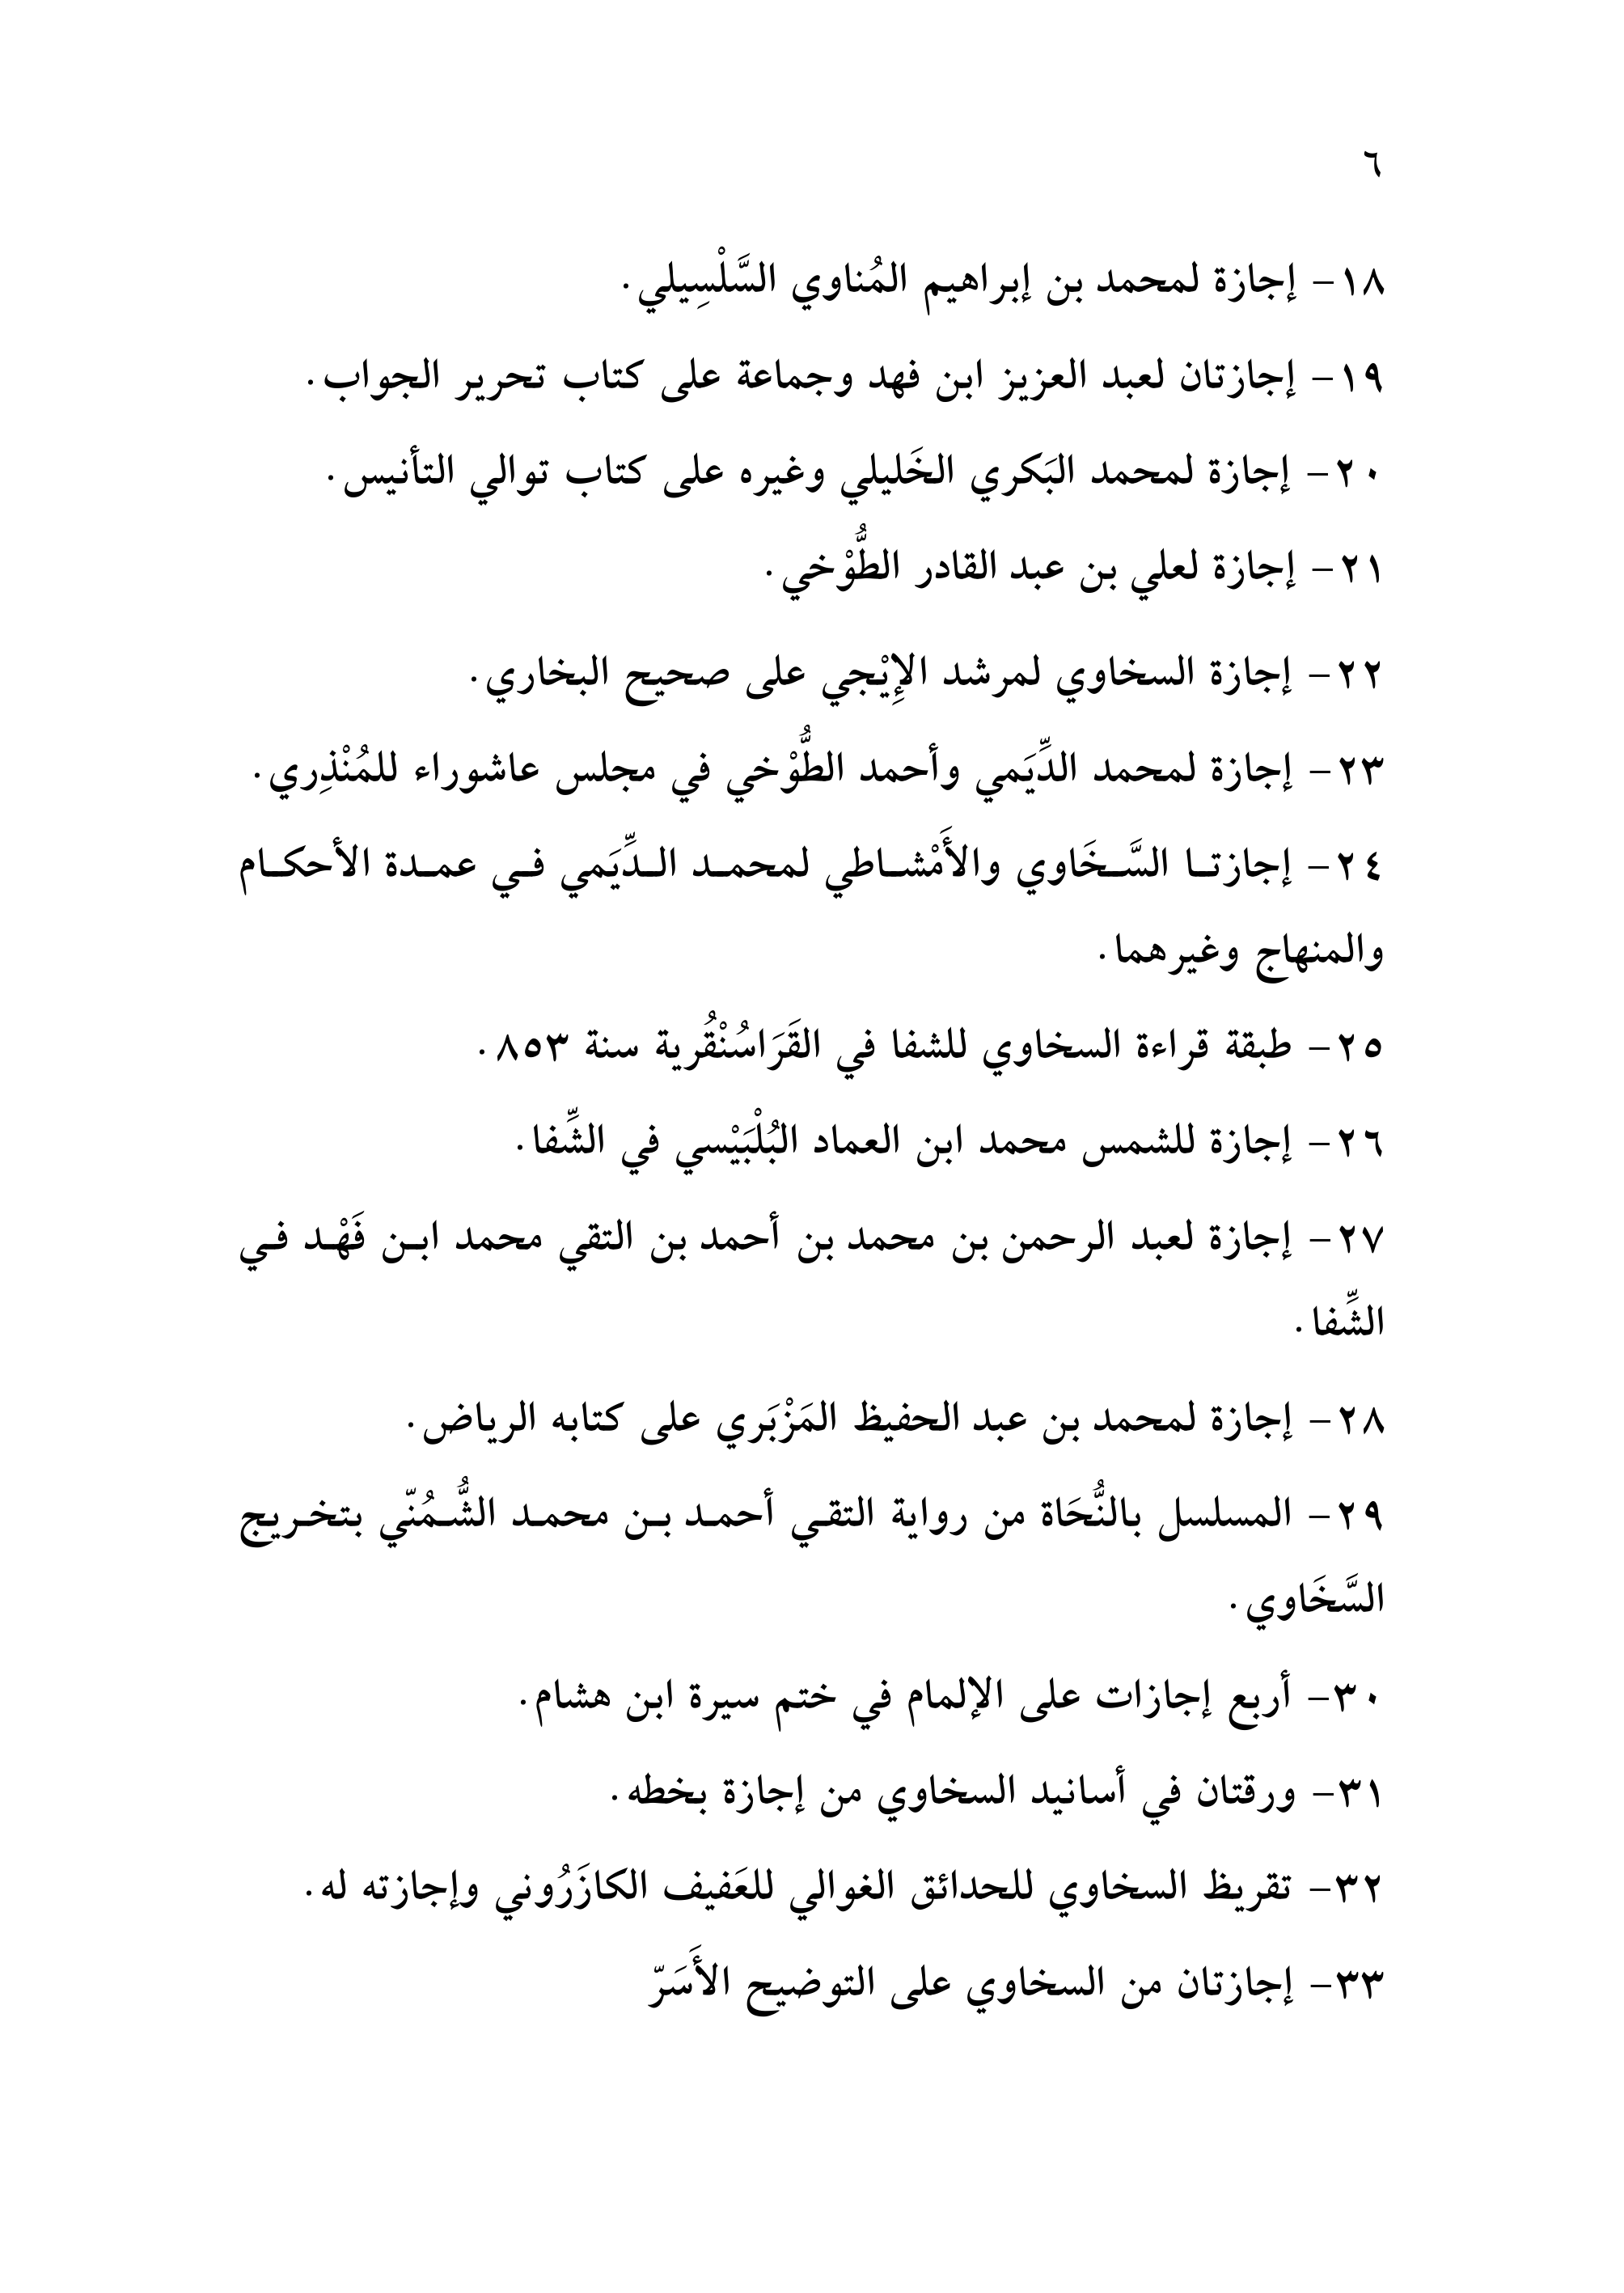 ٦
١٨- إجازة لمحمد بن إبراهيم المُناوي السَّلْسِيلي.
١٩- إجازتان لعبد العزيز ابن فهد وجماعة على كتاب تحرير الجواب.
٢٠- إجازة لمحمد البَكري الخَليلي وغيره على كتاب توالي التأنيس.
٢١- إجازة لعلي بن عبد القادر الطُّوْخي.
٢٢- إجازة السخاوي لمرشد الإِيْجي على صحيح البخاري.
٢٣- إجازة لمحمد الدِّيَمي وأحمد الطُّوْخي في مجلس عاشوراء للمُنْذِري.
٢٤- إجازتا السَّخَاوي والأَمْشاطي لمحمد الدِّيَمي في عمدة الأحكام
والمنهاج وغيرهما.
٢٥- طبقة قراءة السخاوي للشفا في القَرَاسُنْقُرية سنة ٨٥٣.
٢٦- إجازة للشمس محمد ابن العماد البُلْبَيْسي في الشِّفا.
٢٧- إجازة لعبد الرحمن بن محمد بن أحمد بن التقي محمد ابن فَهْد في
الشِّفا.
٢٨- إجازة لمحمد بن عبد الحفيظ المَزْبَري على كتابه الرياض.
٢٩- المسلسل بالنُّحَاة من رواية التقي أحمد بن محمد الشُّمُنّي بتخريج
السَّخَاوي.
٣٠- أربع إجازات على الإلمام في ختم سيرة ابن هشام.
٣١- ورقتان في أسانيد السخاوي من إجازة بخطه.
٣٢- تقريظ السخاوي للحدائق الغوالي للعَفيف الكازَرُوني وإجازته له.
٣٣- إجازتان من السخاوي على التوضيح الأَسَرّ